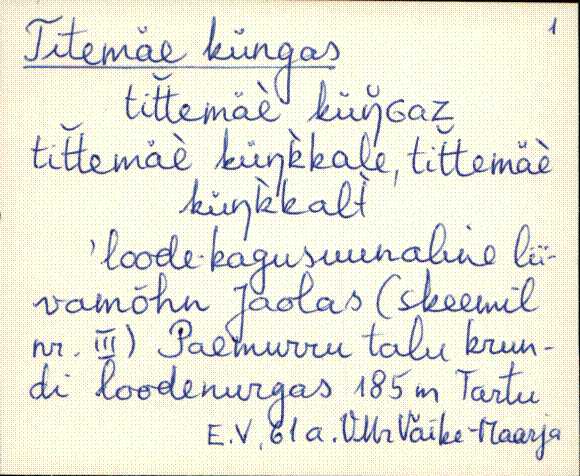 1
Titemäe küngas
tit̆temäè küŋɢaz
tit̆temäè küŋk̀kale, tit̆temäè
küŋk̀kalt̀
'loode-kagusuunaline lii-
vamõhn Jaolas (skeemil
nr. III) Paemurru talu krun-
di loodenurgas 185 m Tartu
E.V, 61 a. Väike-Maarja